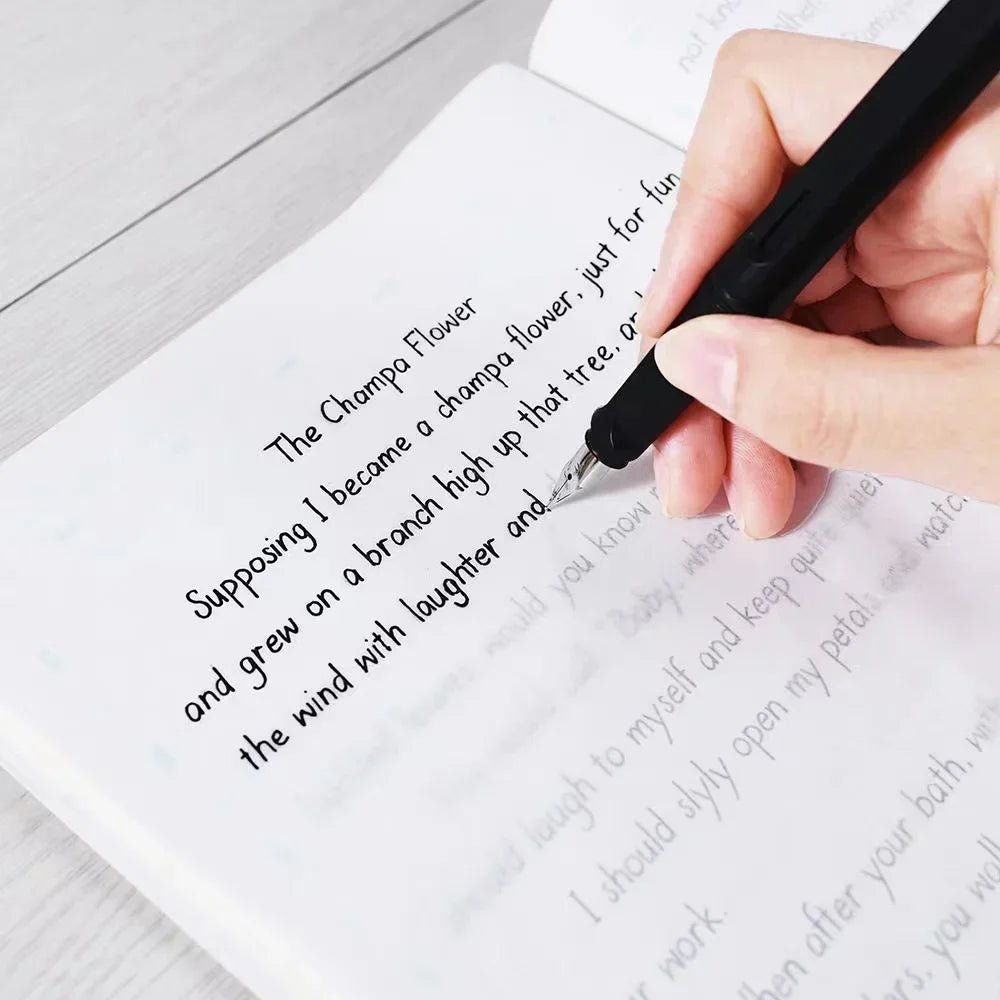 not know
The Champa Flower
Supposing I became a champa flower, just for fun,
and grew on a branch high up that tree, and
the wind with laughter and
would you know
Baby, where
would laugh to myself and keep quite quiet
I should slyly open my petals and watch
your work.
when after your bath, with
you walk